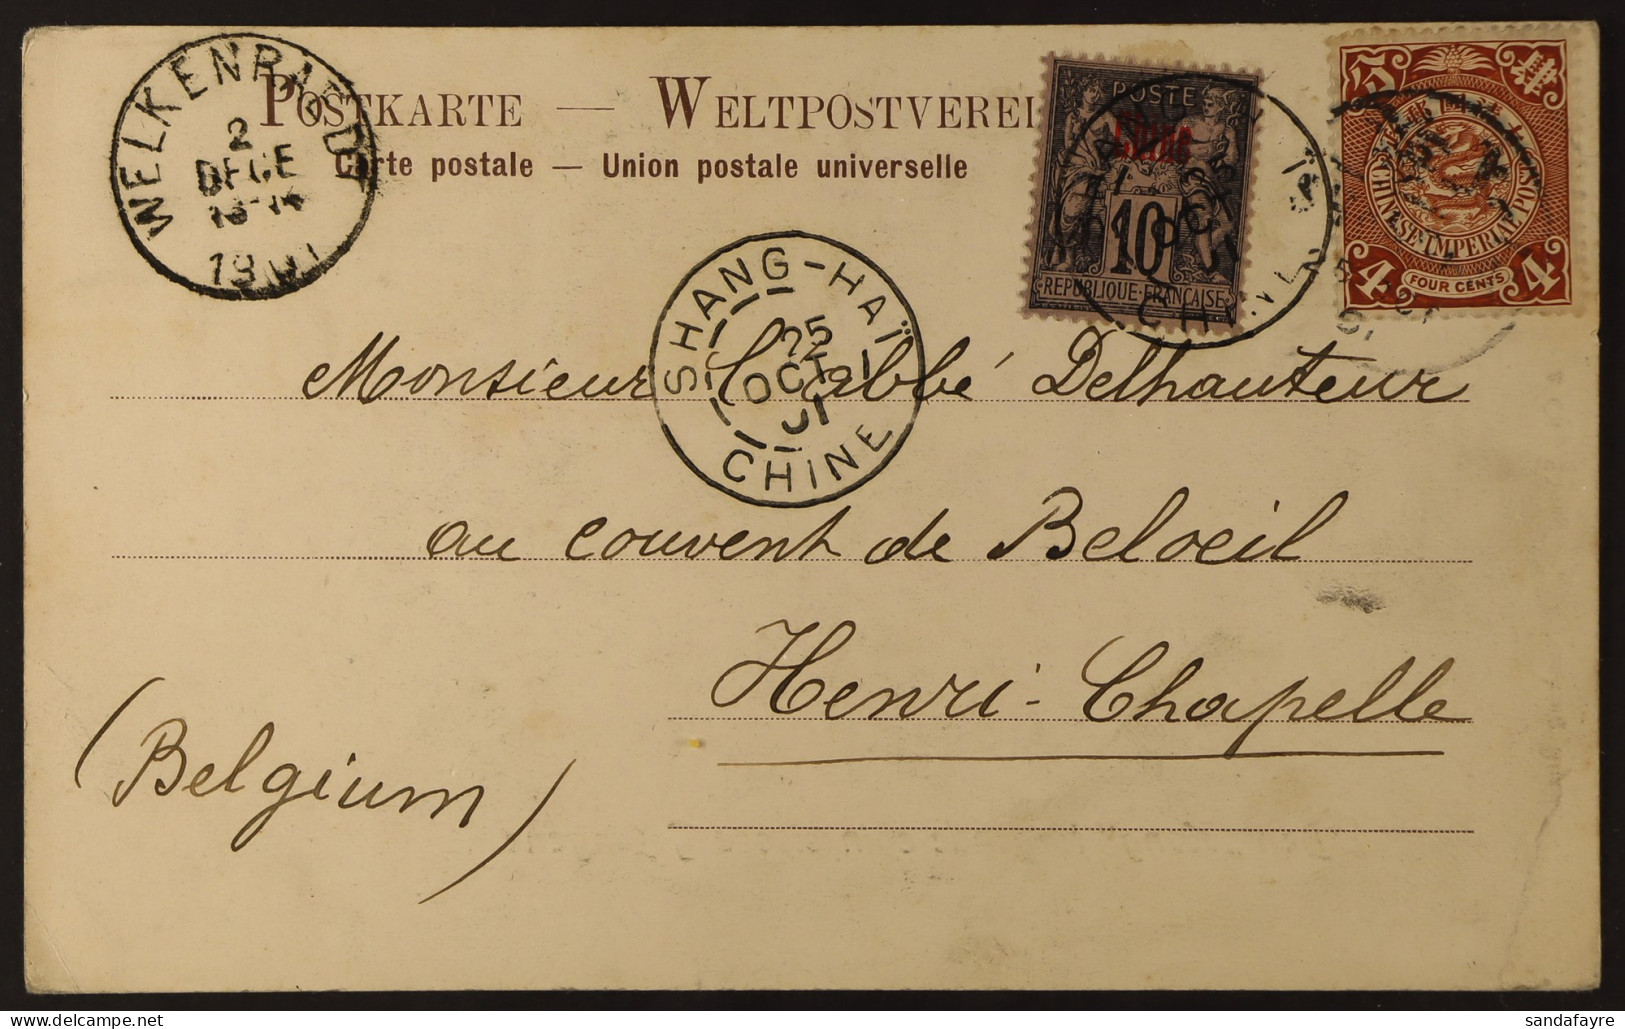 POSTKARTE — WELTPOSTVEREIN
Carte postale — Union postale universelle
2
DECE
13-14
1901
POSTE
Chine
10
REPUBLIQUE·FRANÇAISE
CHINESE·IMPERIAL·POST
4 FOUR CENTS 4
SHANG-HAÏ
25
OCT
01
CHINE
Monsieur l'abbé Delhauteur
au couvent de Beloeil
Henri-Chapelle
(Belgium)
sandafayre